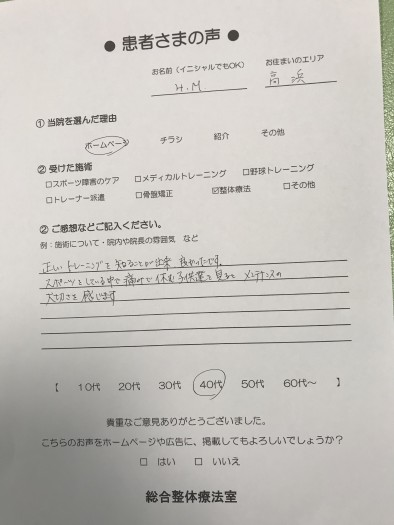 ● 患者さまの声 ●
お名前（イニシャルでもOK） お住まいのエリア
H.M 高浜
① 当院を選んだ理由
ホームページ チラシ 紹介 その他
② 受けた施術
□スポーツ障害のケア □メディカルトレーニング □野球トレーニング
□トレーナー派遣 □骨盤矯正 ☑整体療法 □その他
② ご感想などご記入ください。
例：施術について・院内や院長の雰囲気 など
正しいトレーニングを知ることが出来 良かったです。
スポーツをしている中で痛みで休む子供達を見ると メンテナンスの
大切さを感じます
【 10代 20代 30代 40代 50代 60代～ 】
貴重なご意見ありがとうございました。
こちらのお声をホームページや広告に、掲載してもよろしいでしょうか？
□ はい □ いいえ
総合整体療法室